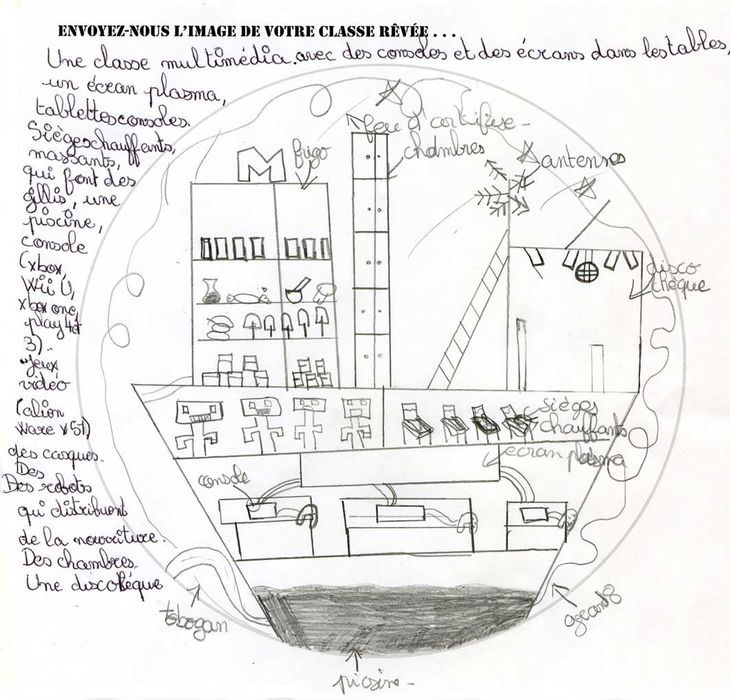 ENVOYEZ-NOUS L'IMAGE DE VOTRE CLASSE RÊVÉE . . .
Une classe multimédia, avec des consoles et des écrans dans les tables,
un écran plasma,
tablettes consoles.
Sièges chauffants,
massants,
qui font des
gillis, une
piscine,
console
(xbox,
Wii U,
xbox one,
play 4 et
3).
Jeux
vidéo
(alien
ware x51)
des casques.
Des
Des robots
qui distribuent
de la nourriture.
Des chambres.
Une discothèque
feu d'artifice
chambres
frigo
M
antennes
disco
thèque
sièges
chauffants
ecran plasma
console
tobogan
piscine